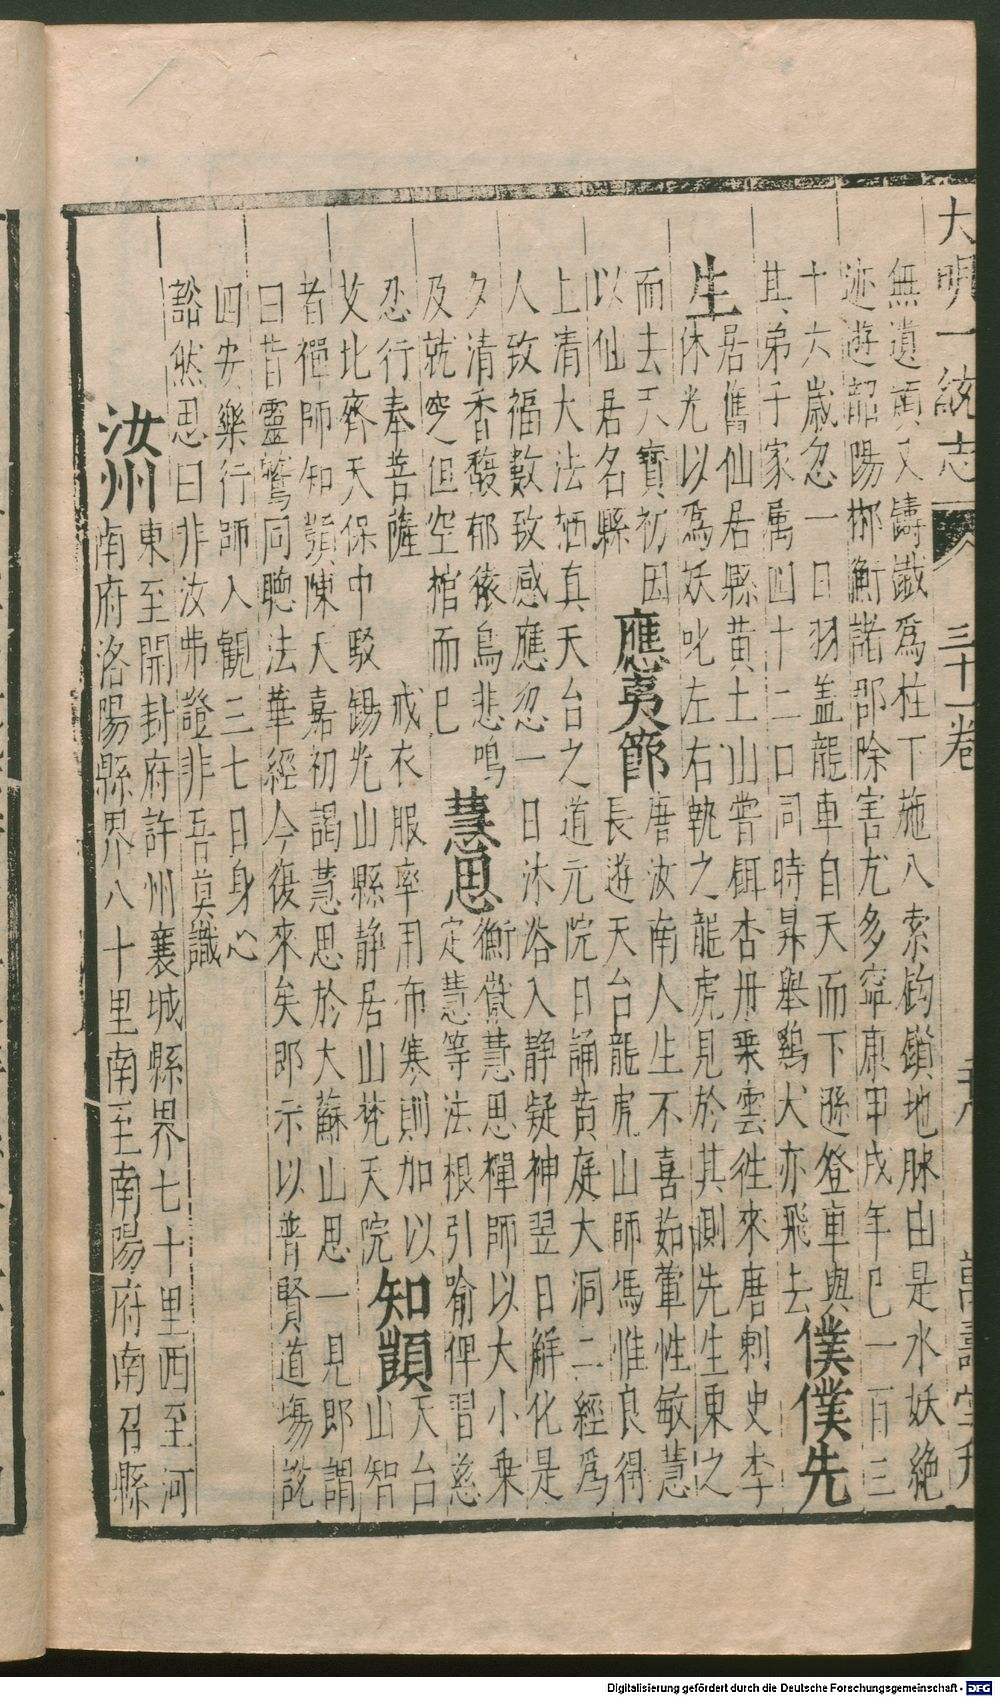 大明一統志 三十一卷 萬壽堂刊
無遺頭又鑄鐵為柱下施八索鈎鎖地脉由是水妖絶
迹遊韶陽郴衡諸郡除害尤多寧康甲戌年巳一百三
十六歲忽一日羽盖龍車自天而下遜登車與
其弟子家属四十二口同時昇舉鷄犬亦飛去
僕僕先
生
居舊仙居縣黄土山嘗餌杏丹乗雲徃來唐刺史李
休光以為妖叱左右執之龍虎見於其側先生東之
而去天寳初因
以仙居名縣
應夷節
唐汝南人生不喜茹葷性敏慧
長遊天台龍虎山師馮惟良得
上清大法栖真天台之道元院日誦黄庭大洞二經為
人致福數致感應忽一日沐浴入静疑神翌日解化是
夕清香馥郁猿鳥悲鳴
及就窆但空棺而已
慧思
衡嶽慧思禪師以大小乗
定慧等法根引喻俾習慈
忍行奉菩薩戒衣服率用布寒則加以
艾北齊天保中駐錫光山縣静居山梵天院
知顗
天台
山智
者禪師知顗陳天嘉初謁慧思於大蘇山思一見即謂
曰昔靈鷲同聽法華經今復來矣即示以普賢道塲說
四安樂行師入觀三七日身心
豁然思曰非汝弗證非吾莫識
汝州
東至開封府許州襄城縣界七十里西至河
南府洛陽縣界八十里南至南陽府南召縣
Digitalisierung gefördert durch die Deutsche Forschungsgemeinschaft - DFG